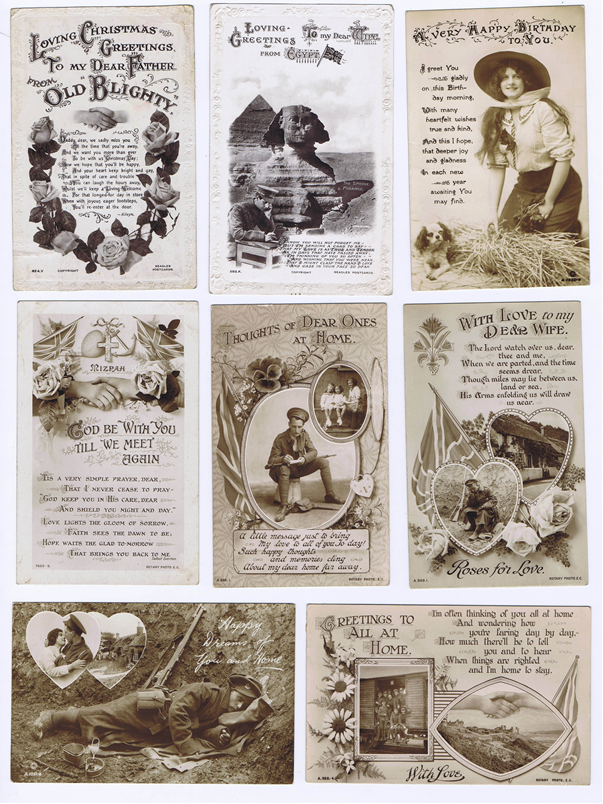 Loving Christmas
Greetings,
To my Dear Father
from
Old Blighty
Daddy dear, we sadly miss you
All the time that you're away,
And we want you more than ever
To be with us Christmas Day;
How we hope that you'll be happy,
And your heart keep bright and gay,
That in spite of care and trouble
You can laugh the hours away,
Whilst we'll keep a Loving Welcome
For that longed-for day in store
When with joyous eager footsteps,
You'll re-enter at the door.
COPYRIGHT
BEAGLES
POSTCARDS
Loving-
Greetings
To my Dear Wife,
from Egypt.
The Sphinx
& Pyramid.
I know you will not forget me
But I'm sending a card to say
That my love is as true and tender
As in days that have passed away;
I'm thinking of you so often
And wishing that you were near,
That I might clasp the hand I love
And gaze in your face so dear.
COPYRIGHT
BEAGLES POSTCARDS
A Very Happy Birthday
to You.
I greet You
gladly
on this Birth-
day morning,
With many
heartfelt wishes
true and kind,
And this I hope,
that deeper joy
and gladness
In each new
year
awaiting You
may find.
Mizpah
God be With You
till We meet
again
'Tis a very simple prayer, dear,
That I never cease to pray—
"God keep you in His care, dear,
And shield you night and day."
Love lights the gloom of sorrow,
Faith sees the dawn to be;
Hope waits the glad to-morrow
That brings you back to me.
ROTARY PHOTO E.C.
Thoughts of Dear Ones
at Home.
A little message just to bring
My love to all of you to day!
Such happy thoughts
and memories cling
About my dear home far away.
ROTARY PHOTO, E.C.
With Love to my
Dear Wife.
The Lord watch over us, dear,
thee and me,
When we are parted, and the time
seems drear,
Though miles may lie between us,
land or sea,
His Arms enfolding us will draw
us near.
Roses for Love.
ROTARY PHOTO E.C.
Happy
Dreams of
You and Home
Greetings to
All at
Home.
I'm often thinking of you all at home
And wondering how
you're faring day by day,-
How much there'll be to tell
you and to hear
When things are righted
and I'm home to stay.
With Love
ROTARY PHOTO, E.C.